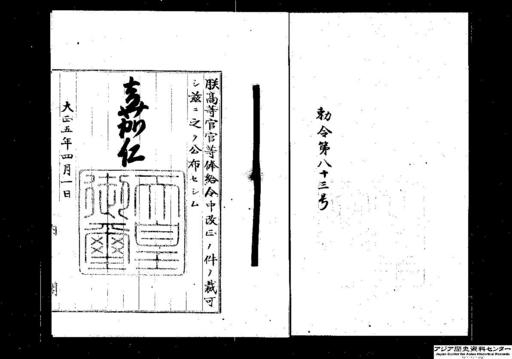 勅令第八十三号
朕高等官官等俸給令中改正ノ件ヲ裁可
シ茲ニ之ヲ公布セシム
嘉仁
天皇御璽
大正五年四月一日
内閣
アジア歴史資料センター
Japan Center for Asian Historical Records